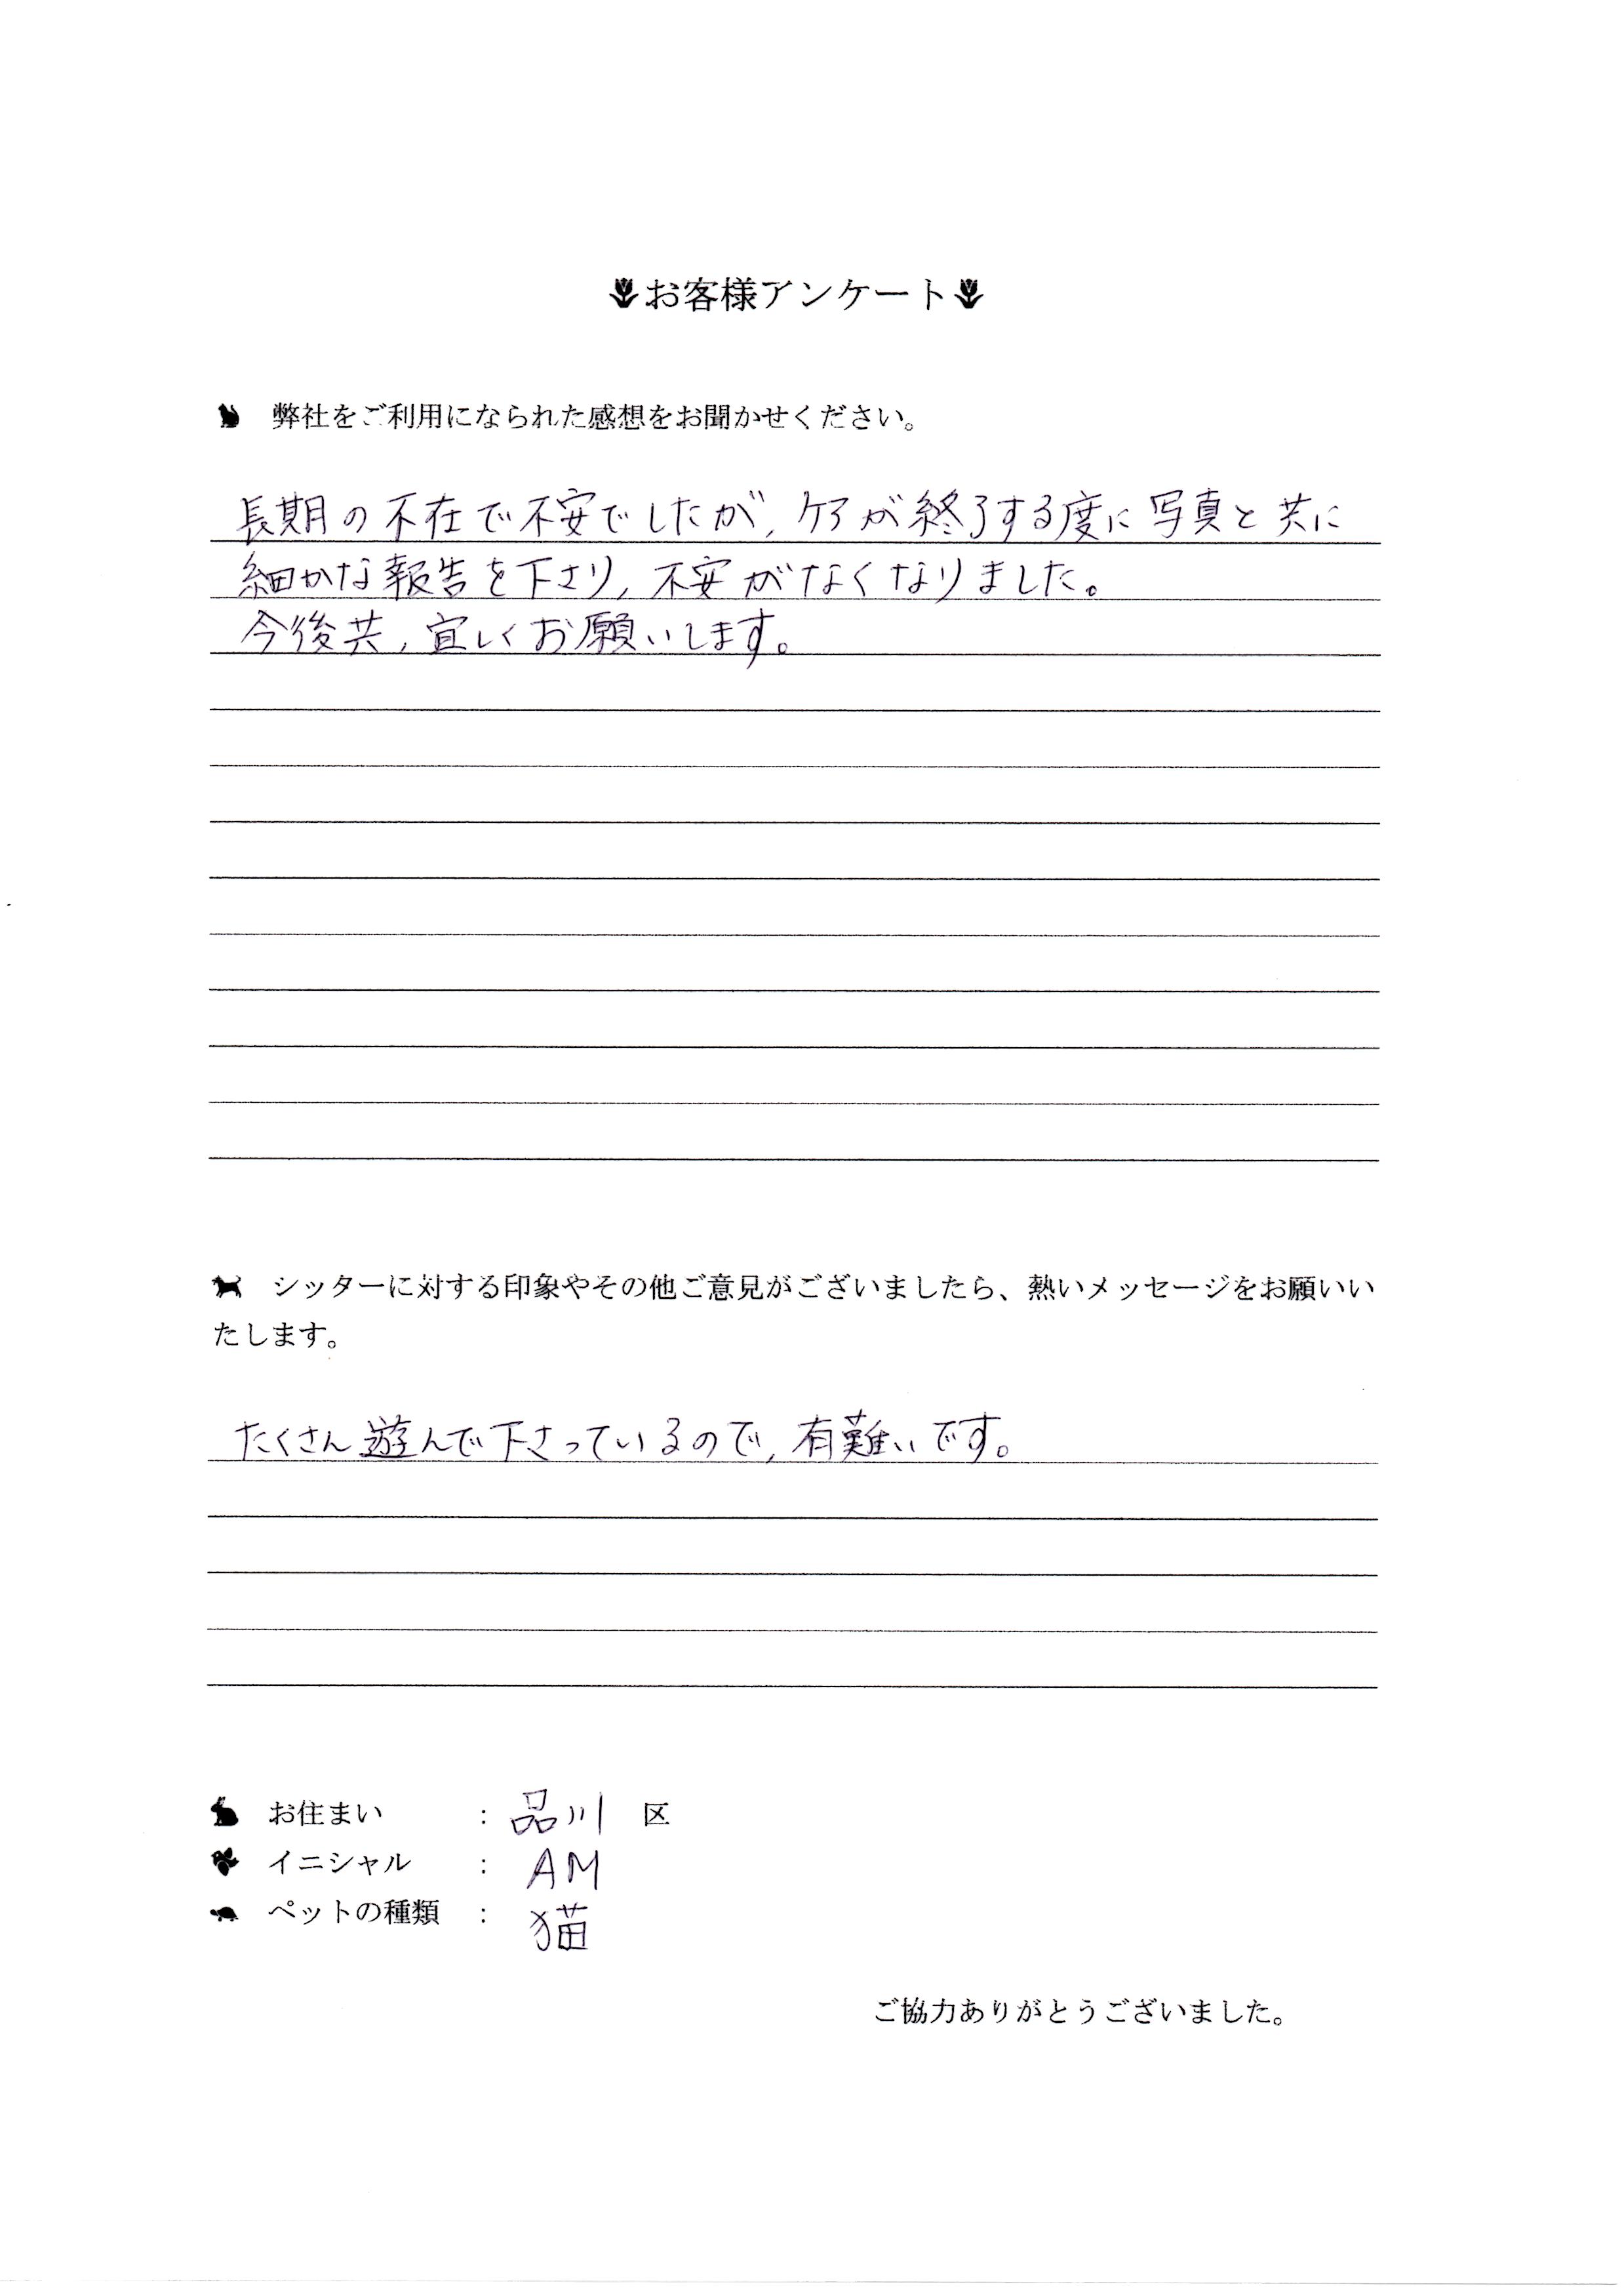 お客様アンケート
弊社をご利用になられた感想をお聞かせください。
長期の不在で不安でしたが、ケアが終了する度に写真と共に
細かな報告を下さり、不安がなくなりました。
今後共、宜しくお願いします。
シッターに対する印象やその他ご意見がございましたら、熱いメッセージをお願いい
たします。
たくさん遊んで下さっているので、有難いです。
お住まい : 品川 区
イニシャル : AM
ペットの種類 : 猫
ご協力ありがとうございました。